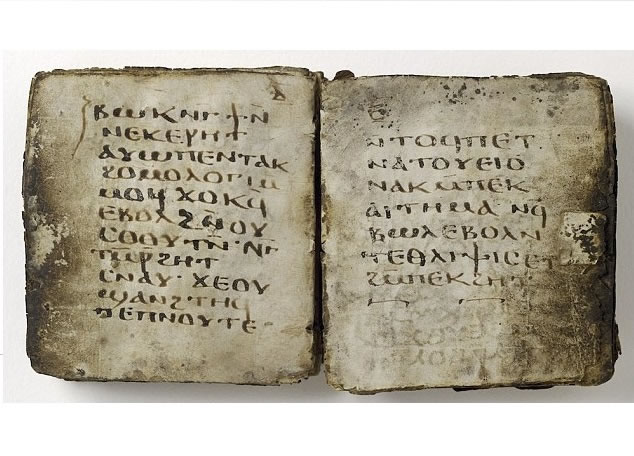 ⲃⲱⲕ ⲛⲅϯⲛ̄
ⲛⲉⲕⲉⲣⲏⲧ
ⲁⲩⲱⲡⲉⲛⲧⲁⲕ
ϩⲟⲙⲟⲗⲟⲅⲓⲙ
ⲙⲟϥ ϫⲟⲕϥ
ⲉⲃⲟⲗ ϩⲛⲟⲩ
ⲥⲟⲟⲩⲧⲛ̄·ⲛⲅ
ⲧⲙⲣϩⲏⲧ
ⲥⲛⲁⲩ· ϫⲉⲟⲩ
ϣⲁⲛϩⲧⲏϥ
ⲡⲉⲡⲛⲟⲩⲧⲉ
ⲉ
ⲛⲧⲟϥⲡⲉⲧ
ⲛⲁⲧⲟⲩⲉⲓⲟ
ⲛⲁⲕⲙⲡⲉⲕ
ⲁⲓⲧⲏⲙⲁ ⲛϥ
ⲃⲱⲗⲉⲃⲟⲗⲛ
ⲧⲉⲑⲗⲓⲯⲓⲥⲉⲧ
ϩⲙⲡⲉⲕϩⲏⲧ